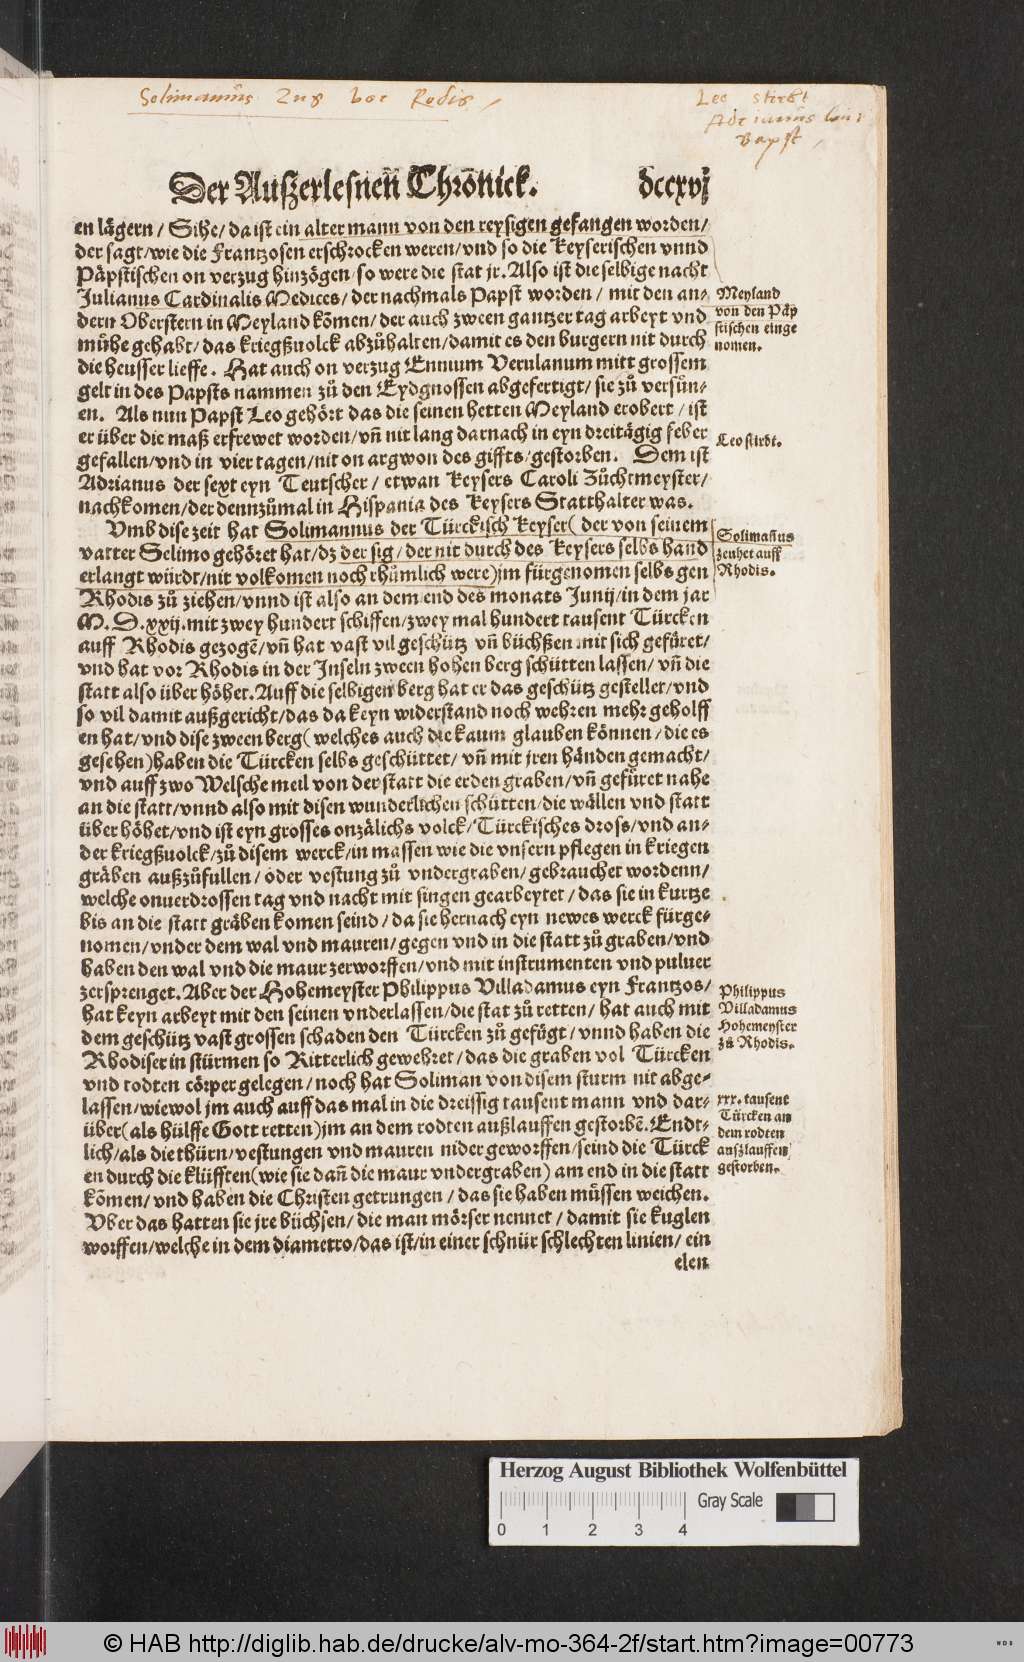 Solimannus Zug vor Rodis
Leo stirbt
Adrianus
Bapst
Der Außerlesneñ Chrōnick. dccxvj
en lägern / Sihe / da ist ein alter mann von den reysigen gefangen worden /
der sagt / wie die Frantzosen erschrocken weren / vnd so die Keyserischen vnnd
Päpstischen on verzug hinzögen / so were die stat jr. Also ist die selbige nacht
Julianus Cardinalis Medices / der nachmals Papst worden / mit den an-
dern Oberstern in Meyland kōmen / der auch zween gantzer tag arbeyt vnd
mühe gehabt / das kriegßuolck abzůhalten / damit es den burgern nit durch
die heusser lieffe. Hat auch on verzug Ennium Verulanum mitt grossem
gelt in des Papsts nammen zů den Eydgnossen abgefertigt / sie zů versün-
en. Als nun Papst Leo gehört das die seinen hetten Meyland erobert / ist
er über die maß erfrewet worden / vñ nit lang darnach in eyn dreitägig feber
gefallen / vnd in vier tagen / nit on argwon des giffts / gestorben. Dem ist
Adrianus der sext eyn Teutscher / etwan Keysers Caroli Zůchtmeyster /
nachkomen / der dennzůmal in Hispania des Keysers Statthalter was.
Vmb dise zeit hat Solimannus der Türckisch Keyser ( der von seinem
vatter Selimo gehöret hat / dz der sig / der nit durch des Keysers selbs hand
erlangt würdt / nit volkomen noch rhůmlich were ) jm fürgenomen selbs gen
Rhodis zů ziehen / vnnd ist also an dem end des monats Junij / in dem jar
M. D. xxij. mit zwey hundert schiffen / zwey mal hundert tausent Türcken
auff Rhodis gezogē / vñ hat vast vil geschütz vñ büchßen mit sich gefüret /
vnd hat vor Rhodis in der Inseln zween hohen berg schütten lassen / vñ die
statt also über höhet. Auff die selbigen berg hat er das geschütz gestellet / vnd
so vil damit außgericht / das da keyn widerstand noch wehren mehr geholff
en hat / vnd dise zween berg ( welches auch die kaum glauben können / die es
gesehen ) haben die Türcken selbs geschüttet / vñ mit jren händen gemacht /
vnd auff zwo Welsche meil von der statt die erden graben / vñ gefüret nahe
an die statt / vnnd also mit disen wunderlichen schütten / die wällen vnd statt
über höhet / vnd ist eyn grosses onzälichs volck / Türckisches dross / vnd an-
der kriegßuolck / zů disem werck / in massen wie die vnsern pflegen in kriegen
gräben außzůfullen / oder vestung zů vndergraben / gebrauchet wordenn /
welche onuerdrossen tag vnd nacht mit singen gearbeytet / das sie in kurtze
bis an die statt gräben komen seind / da sie hernach eyn newes werck fürge-
nomen / vnder dem wal vnd mauren / gegen vnd in die statt zů graben / vnd
haben den wal vnd die maur zerworffen / vnd mit instrumenten vnd puluer
zersprenget. Aber der Hohemeyster Philippus Villadamus eyn Frantzos /
hat keyn arbeyt mit den seinen vnderlassen / die stat zů retten / hat auch mit
dem geschütz vast grossen schaden den Türcken zů gefügt / vnnd haben die
Rhodiser in stürmen so Ritterlich gewehret / das die graben vol Türcken
vnd todten cörper gelegen / noch hat Soliman von disem sturm nit abge-
lassen / wiewol jm auch auff das mal in die dreissig tausent mann vnd dar-
über ( als hülffe Gott retten ) jm an dem rodten außlauffen gestorbē. Endt-
lich / als die thürn / vestungen vnd mauren nider geworffen / seind die Türck
en durch die klüfften ( wie sie dañ die maur vndergraben ) am end in die statt
kōmen / vnd haben die Christen getrungen / das sie haben müssen weichen.
Vber das hatten sie jre büchsen / die man mörser nennet / damit sie kuglen
worffen / welche in dem diametro / das ist / in einer schnür schlechten linien / ein
elen
Meyland
von den Päp
stischen einge
nomen.
Leo stirbt.
Solimañus
zeuhet auff
Rhodis.
Philippus
Villadamus
Hohemeyster
zů Rhodis.
xxx. tausent
Türcken an
dem rodten
außlauffen
gestorben.
Herzog August Bibliothek Wolfenbüttel
Gray Scale
0 1 2 3 4
© HAB http://diglib.hab.de/drucke/alv-mo-364-2f/start.htm?image=00773